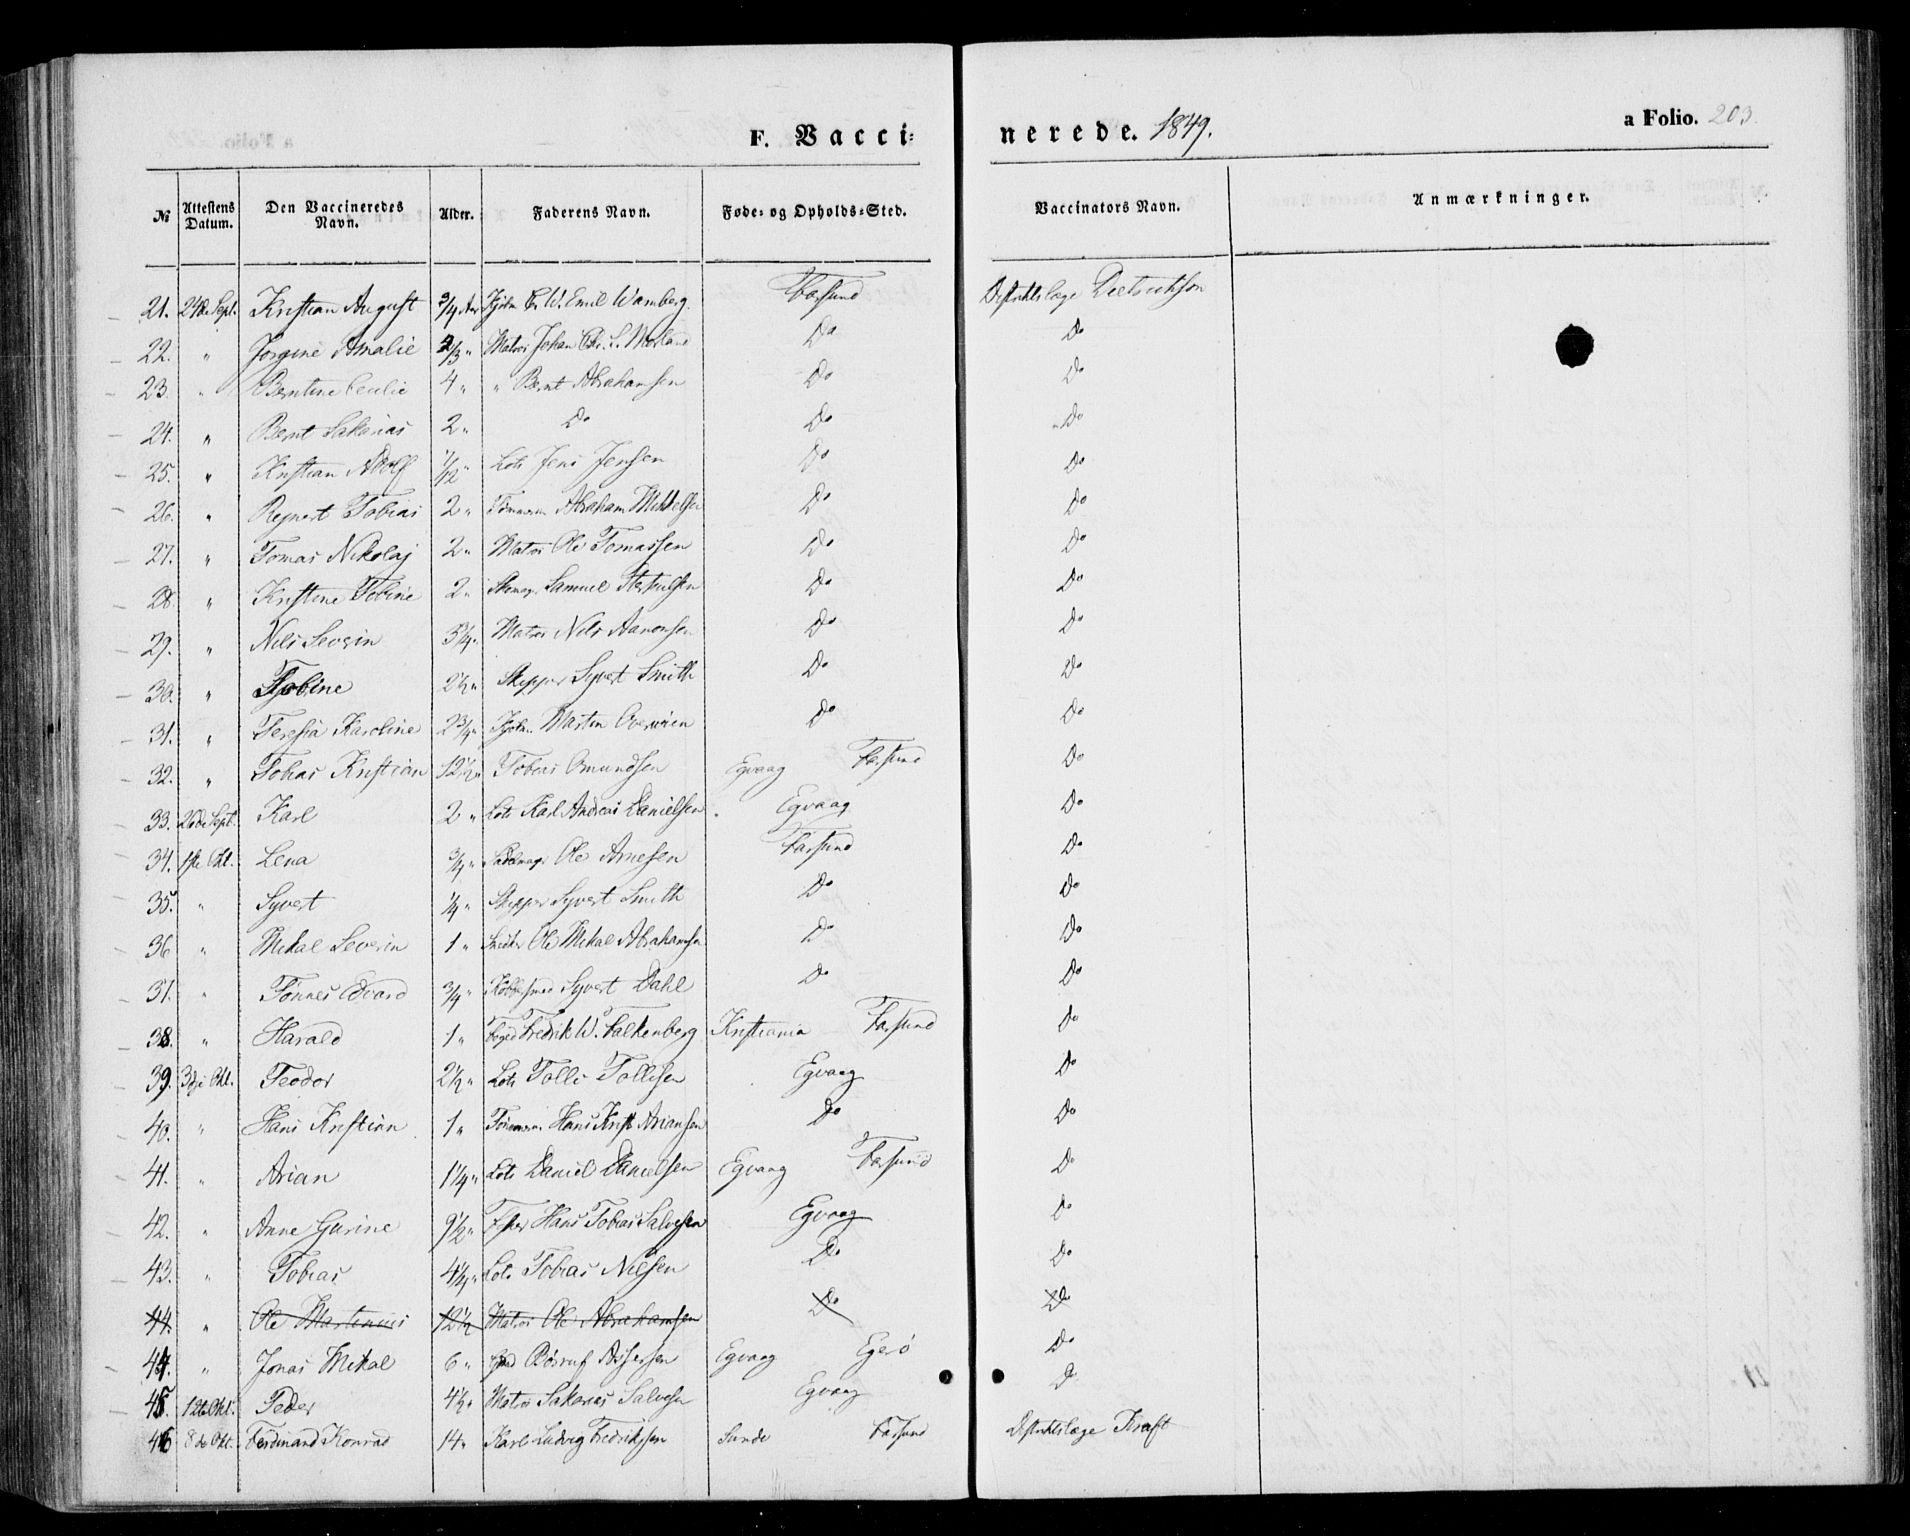 F. Vaccinerede. 1849. a Folio. 203.
№ Attestens Datum. Den Vaccineredes Navn. Alder. Faderens Navn. Føde- og Opholds-Sted. Vaccinators Navn. Anmærkninger.
21. 24de Sept. Kristian August 3/4 Aar W. Emil Wamberg. Farsund Distriktslæge Dietrichson
22. " Jorgine Amalie 2/3 " Matros Johan Chr. L. Do Do
23. " Berntine 4 " " Bernt Abrahamsen Do Do
24. " Bernt Sakarias 2 " Do Do Do
25. " Kristian Adolf 1/12 " Lots Jens Jensen Do Do
26. " Reinert Tobias 2 " Tømmerm Abraham Mikkelsen Do Do
27. " Tomas Nikolaj 2 " Matros Ole Tomassen Do Do
28. " Kristine Tobine 2 " Skomag. Samuel Do Do
29. " Nils Severin 3 3/4 " Matros Nils Aanonsen Do Do
30. " Tobine 2 1/2 " Skipper Syvert Smith Do Do
31. " Teresia Karoline 2 3/4 " Martin Do Do
32. " Tobias Kristian 12 1/2 " Tobias Omundsen Egvaag Farsund Do
33. 26de Sept. Karl 2 " Lots Karl Andreas Danielsen Egvaag Do
34. 1ste Okt. Lena 3/4 " Sadelmag. Ole Arnesen Farsund Do
35. " Syvert 1/4 " Skipper Syvert Smith Do Do
36 " Mikal Severin 1 " Ole Mikal Abrahamsen Do Do
37. " Tønnes Edvard 3/4 " Kobbersmed Syvert Dahl Do Do
38. " Harald 1 " Foged Fredrik W. Falkenberg Kristiania Farsund Do
39. 3die Okt. Teodor 2 1/2 " Lots Tolli Tollisen Egvaag Do
40. " Hans Kristian 1 " Tømmerm. Hans Krist Ariansen Do Do
41. " Arian 1 1/4 " Lots Daniel Danielsen Egvaag Farsund Do
42. " Anne Gurine 9 1/2 " Hans Tobias Salvesen Egvaag Do
43. " Tobias 4 1/4 " Lots Tobias Nilsen Do Do
44. " Ole Martinius 12 1/2 Matros Ole Abrahamsen Do Do
44. " Jonas Mikal 6 " Assersen Egvaag Egerö Do
45. 12te Okt. Peder 4 1/2 " Matros Sakarias Salvesen Egvaag D
46 8de Okt. Ferdinand Konrad 14 " Karl Ludvig Fredriksen Sunde Farsund Distriktslæge Kraft